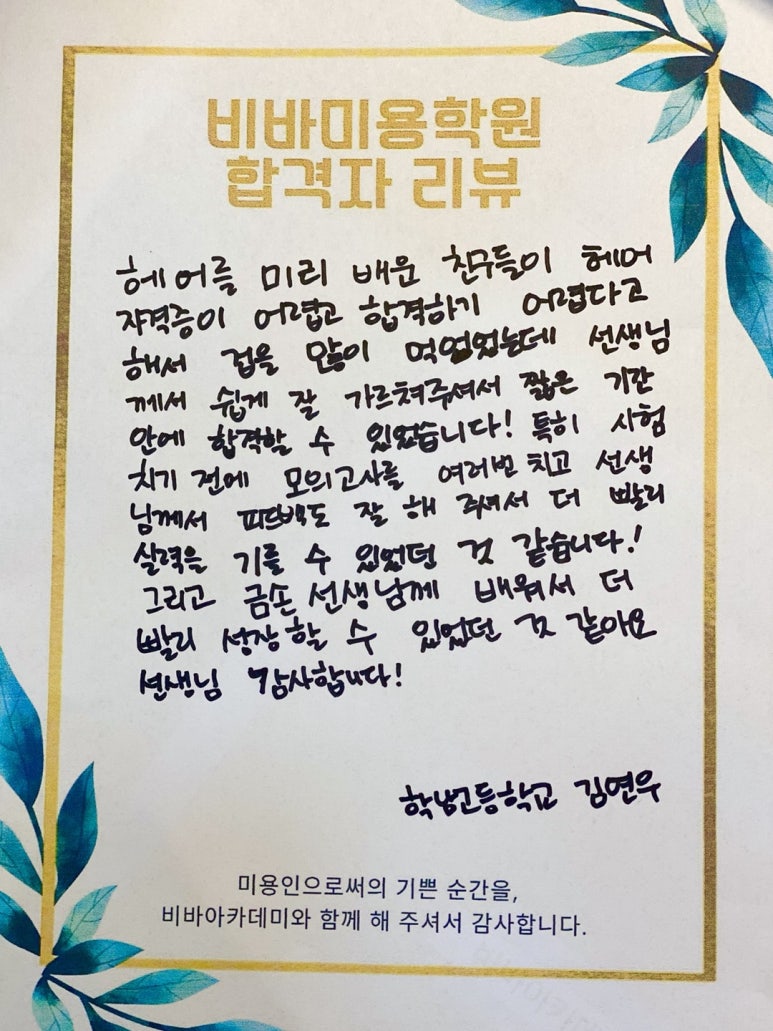 비바미용학원
합격자 리뷰
헤어를 미리 배운 친구들이 헤어
자격증이 어렵고 합격하기 어렵다고
해서 겁을 많이 먹었었는데 선생님
께서 쉽게 잘 가르쳐주셔서 짧은 기간
안에 합격할 수 있었습니다! 특히 시험
치기 전에 모의고사를 여러번 치고 선생
님께서 피드백도 잘 해 주셔서 더 빨리
실력을 기를 수 있었던 것 같습니다!
그리고 금손 선생님께 배워서 더
빨리 성장할 수 있었던 것 같아요
선생님 감사합니다!
김연우
미용인으로써의 기쁜 순간을,
비바아카데미와 함께 해 주셔서 감사합니다.